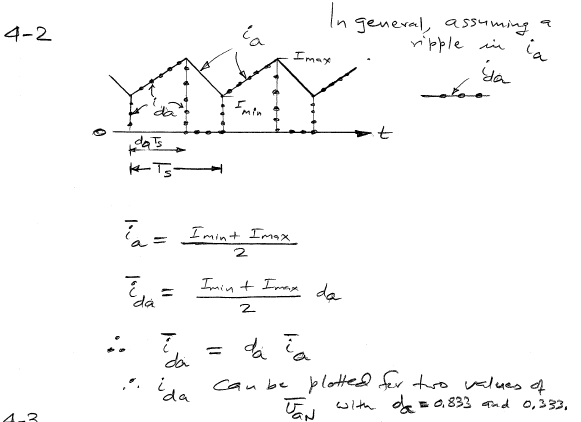 4-2
In general, assuming a
ripple in i_a
i_a
I_max
i_da
i_da
I_min
0
t
d_a T_s
T_s
ī_a = (I_min + I_max) / 2
ī_da = (I_min + I_max) / 2 d_a
∴ ī_da = d_a ī_a
∴ i_da can be plotted for two values of
v̄_aN with d_a = 0.833 and 0.333.
4-3